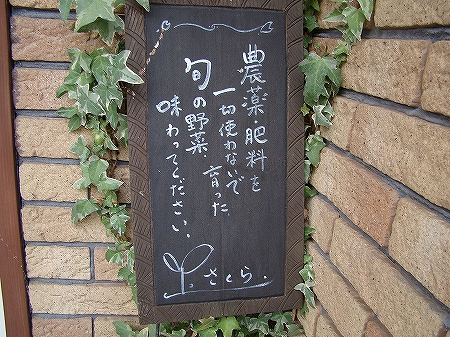 農薬・肥料を
一切使わないで
育った
旬の野菜、
味わってください。
さくら.